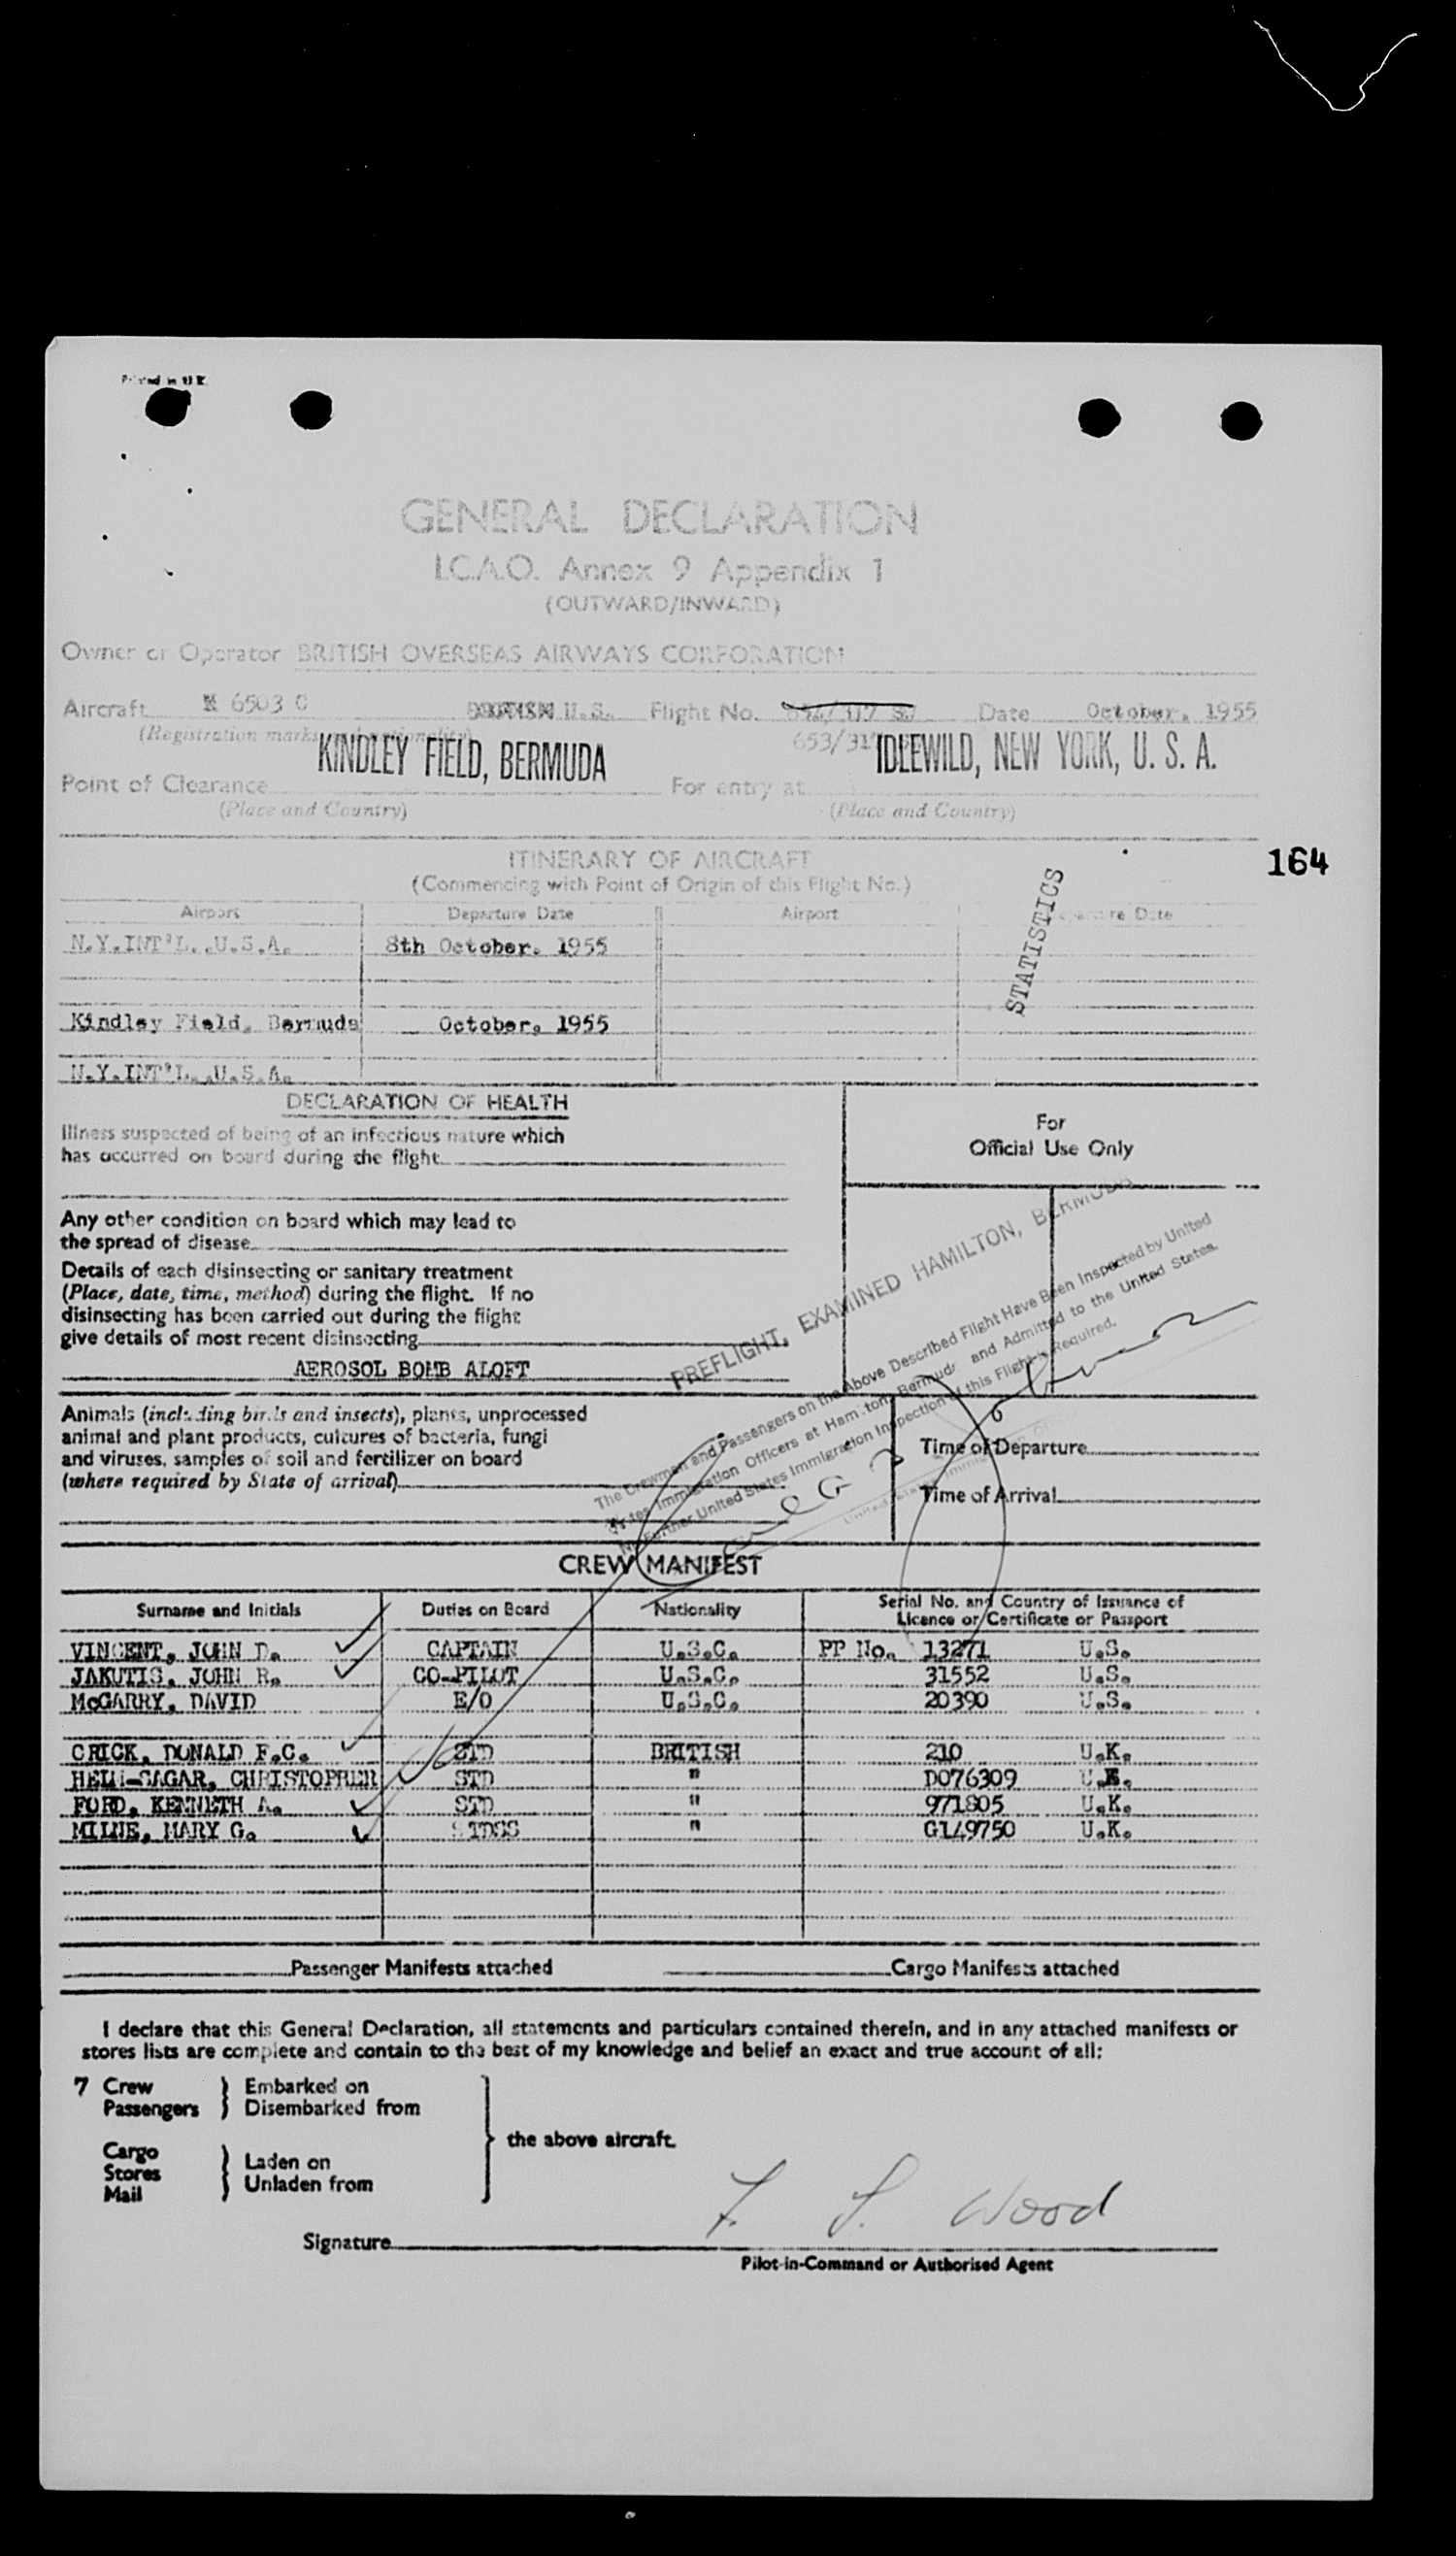 Printed in U.K.
GENERAL DECLARATION
I.C.A.O. Annex 9 Appendix 1
(OUTWARD/INWARD)
Owner or Operator BRITISH OVERSEAS AIRWAYS CORPORATION
Aircraft N 6503 C U.S. Flight No. Date October, 1955
(Registration marks
653/317
KINDLEY FIELD, BERMUDA IDLEWILD, NEW YORK, U. S. A.
Point of Clearance For entry at
(Place and Country) (Place and Country)
ITINERARY OF AIRCRAFT
164
(Commencing with Point of Origin of this Flight No.)
Airport Departure Date Airport Departure Date
N.Y.INT'L.,U.S.A. 8th October. 1955
STATISTICS
Kindley Field, Bermuda October, 1955
N.Y.INT'L.,U.S.A.
DECLARATION OF HEALTH
For
Official Use Only
Illness suspected of being of an infectious nature which
has occurred on board during the flight
Any other condition on board which may lead to
the spread of disease
Details of each disinsecting or sanitary treatment
(Place, date, time, method) during the flight. If no
disinsecting has been carried out during the flight
give details of most recent disinsecting
AEROSOL BOMB ALOFT
PREFLIGHT, EXAMINED HAMILTON, BERMUDA
The Crewmen and Passengers on the Above Described Flight Have Been Inspected by United
States Immigration Officers at Hamilton, Bermuda and Admitted to the United States.
No Further United States Immigration Inspection of this Flight is Required.
Animals (including birds and insects), plants, unprocessed
animal and plant products, cultures of bacteria, fungi
and viruses, samples of soil and fertilizer on board
(where required by State of arrival)
Time of Departure
Time of Arrival
CREW MANIFEST
Surname and Initials Duties on Board Nationality Serial No. and Country of Issuance of
Licence or Certificate or Passport
VINCENT, JOHN D. CAPTAIN U.S.C. PP No. 13271 U.S.
JAKUTIS, JOHN R. CO-PILOT U.S.C. 31552 U.S.
McGARRY, DAVID E/O U.S.C. 20390 U.S.
CRICK, DONALD F.C. STD BRITISH 210 U.K.
CHRISTOPHER STD " D076309 U.K.
FORD, KENNETH A. STD " 971805 U.K.
MILNE, MARY G. STDSS " G149750 U.K.
Passenger Manifests attached Cargo Manifests attached
I declare that this General Declaration, all statements and particulars contained therein, and in any attached manifests or
stores lists are complete and contain to the best of my knowledge and belief an exact and true account of all:
7 Crew Embarked on
Passengers Disembarked from
the above aircraft.
Cargo
Stores Laden on
Mail Unladen from
F. S. Wood
Signature
Pilot-in-Command or Authorised Agent